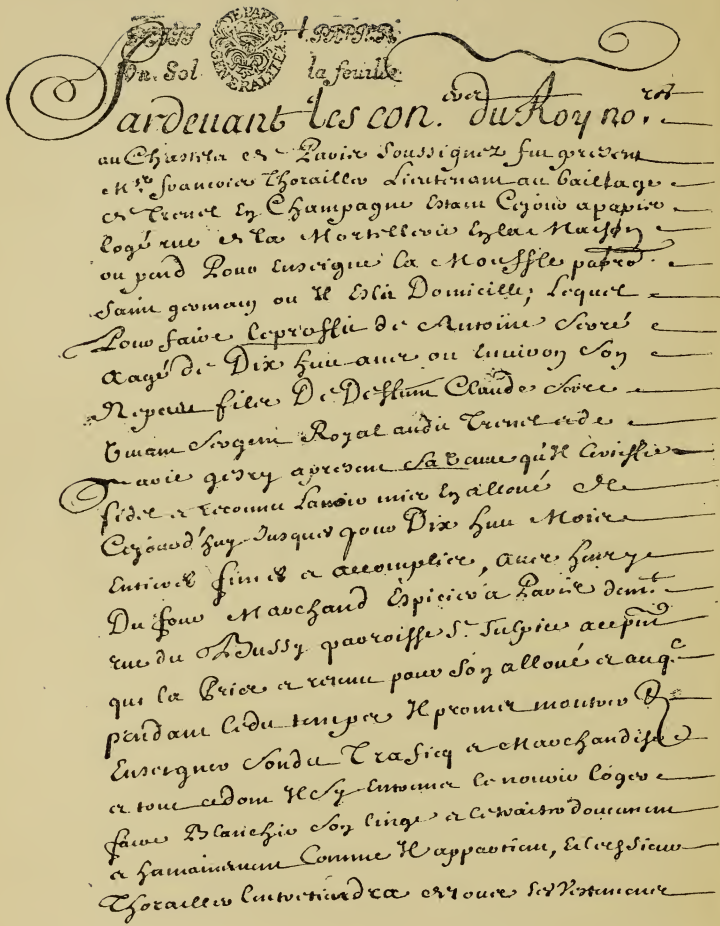 GENERALITE DE PARIS
Un Sol la feuille
Pardevant les con.ers du Roy no.res
au Chastelet de Paris soussignez fut present
M.re Francois Thorailler Lieutenant au bailliage
de Trenel En Champagne Estant Cejour a paris
logé rue de la Mortellerie En la Maison
ou pend Pour Enseigne la Mouffle par
Saint germain ou Il Eslit Domicille, Lequel
Pour faire le proffit de Antoine Sevré
aagé de Dix huit ans ou Environ son
Nepveu filz De Deffunt Claude Sevré
vivant Sergent Royal audit Trenel et de
Marie gesry apresent sa veuve qu'Il Certiffie
fidel a reconnu L'avoir mis En alloué de
Cejourd'huy Jusques pour Dix huit Mois
Entiers finis et accomplies, avec henry
Du four Marchand Espicier a Paris dem.t
rue du Bussy parroisse S.t Sulpice
qui la Pris et retenu pour son alloué et auq.l
pendant ledit temps Il promet monstrer Et
Enseigner sondit Traficq et Marchandise
et tout ce dont Il s'y Entremet le nourir loger
faire Blanchir son linge et le traitter doucement
et humainement Comme Il appartient, Et led. sieur
Thorailler l'entretiendra de tous ses Vestemens